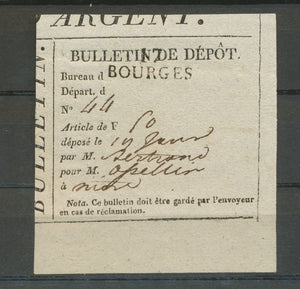 ARGENT.
BULLETIN
BULLETIN DE DÉPÔT.
17
Bureau d BOURGES
Départ. d
N° 44
Article de F 60
déposé le 19
par M. Bertrand
pour M.
à
Nota. Ce bulletin doit être gardé par l'envoyeur
en cas de réclamation.